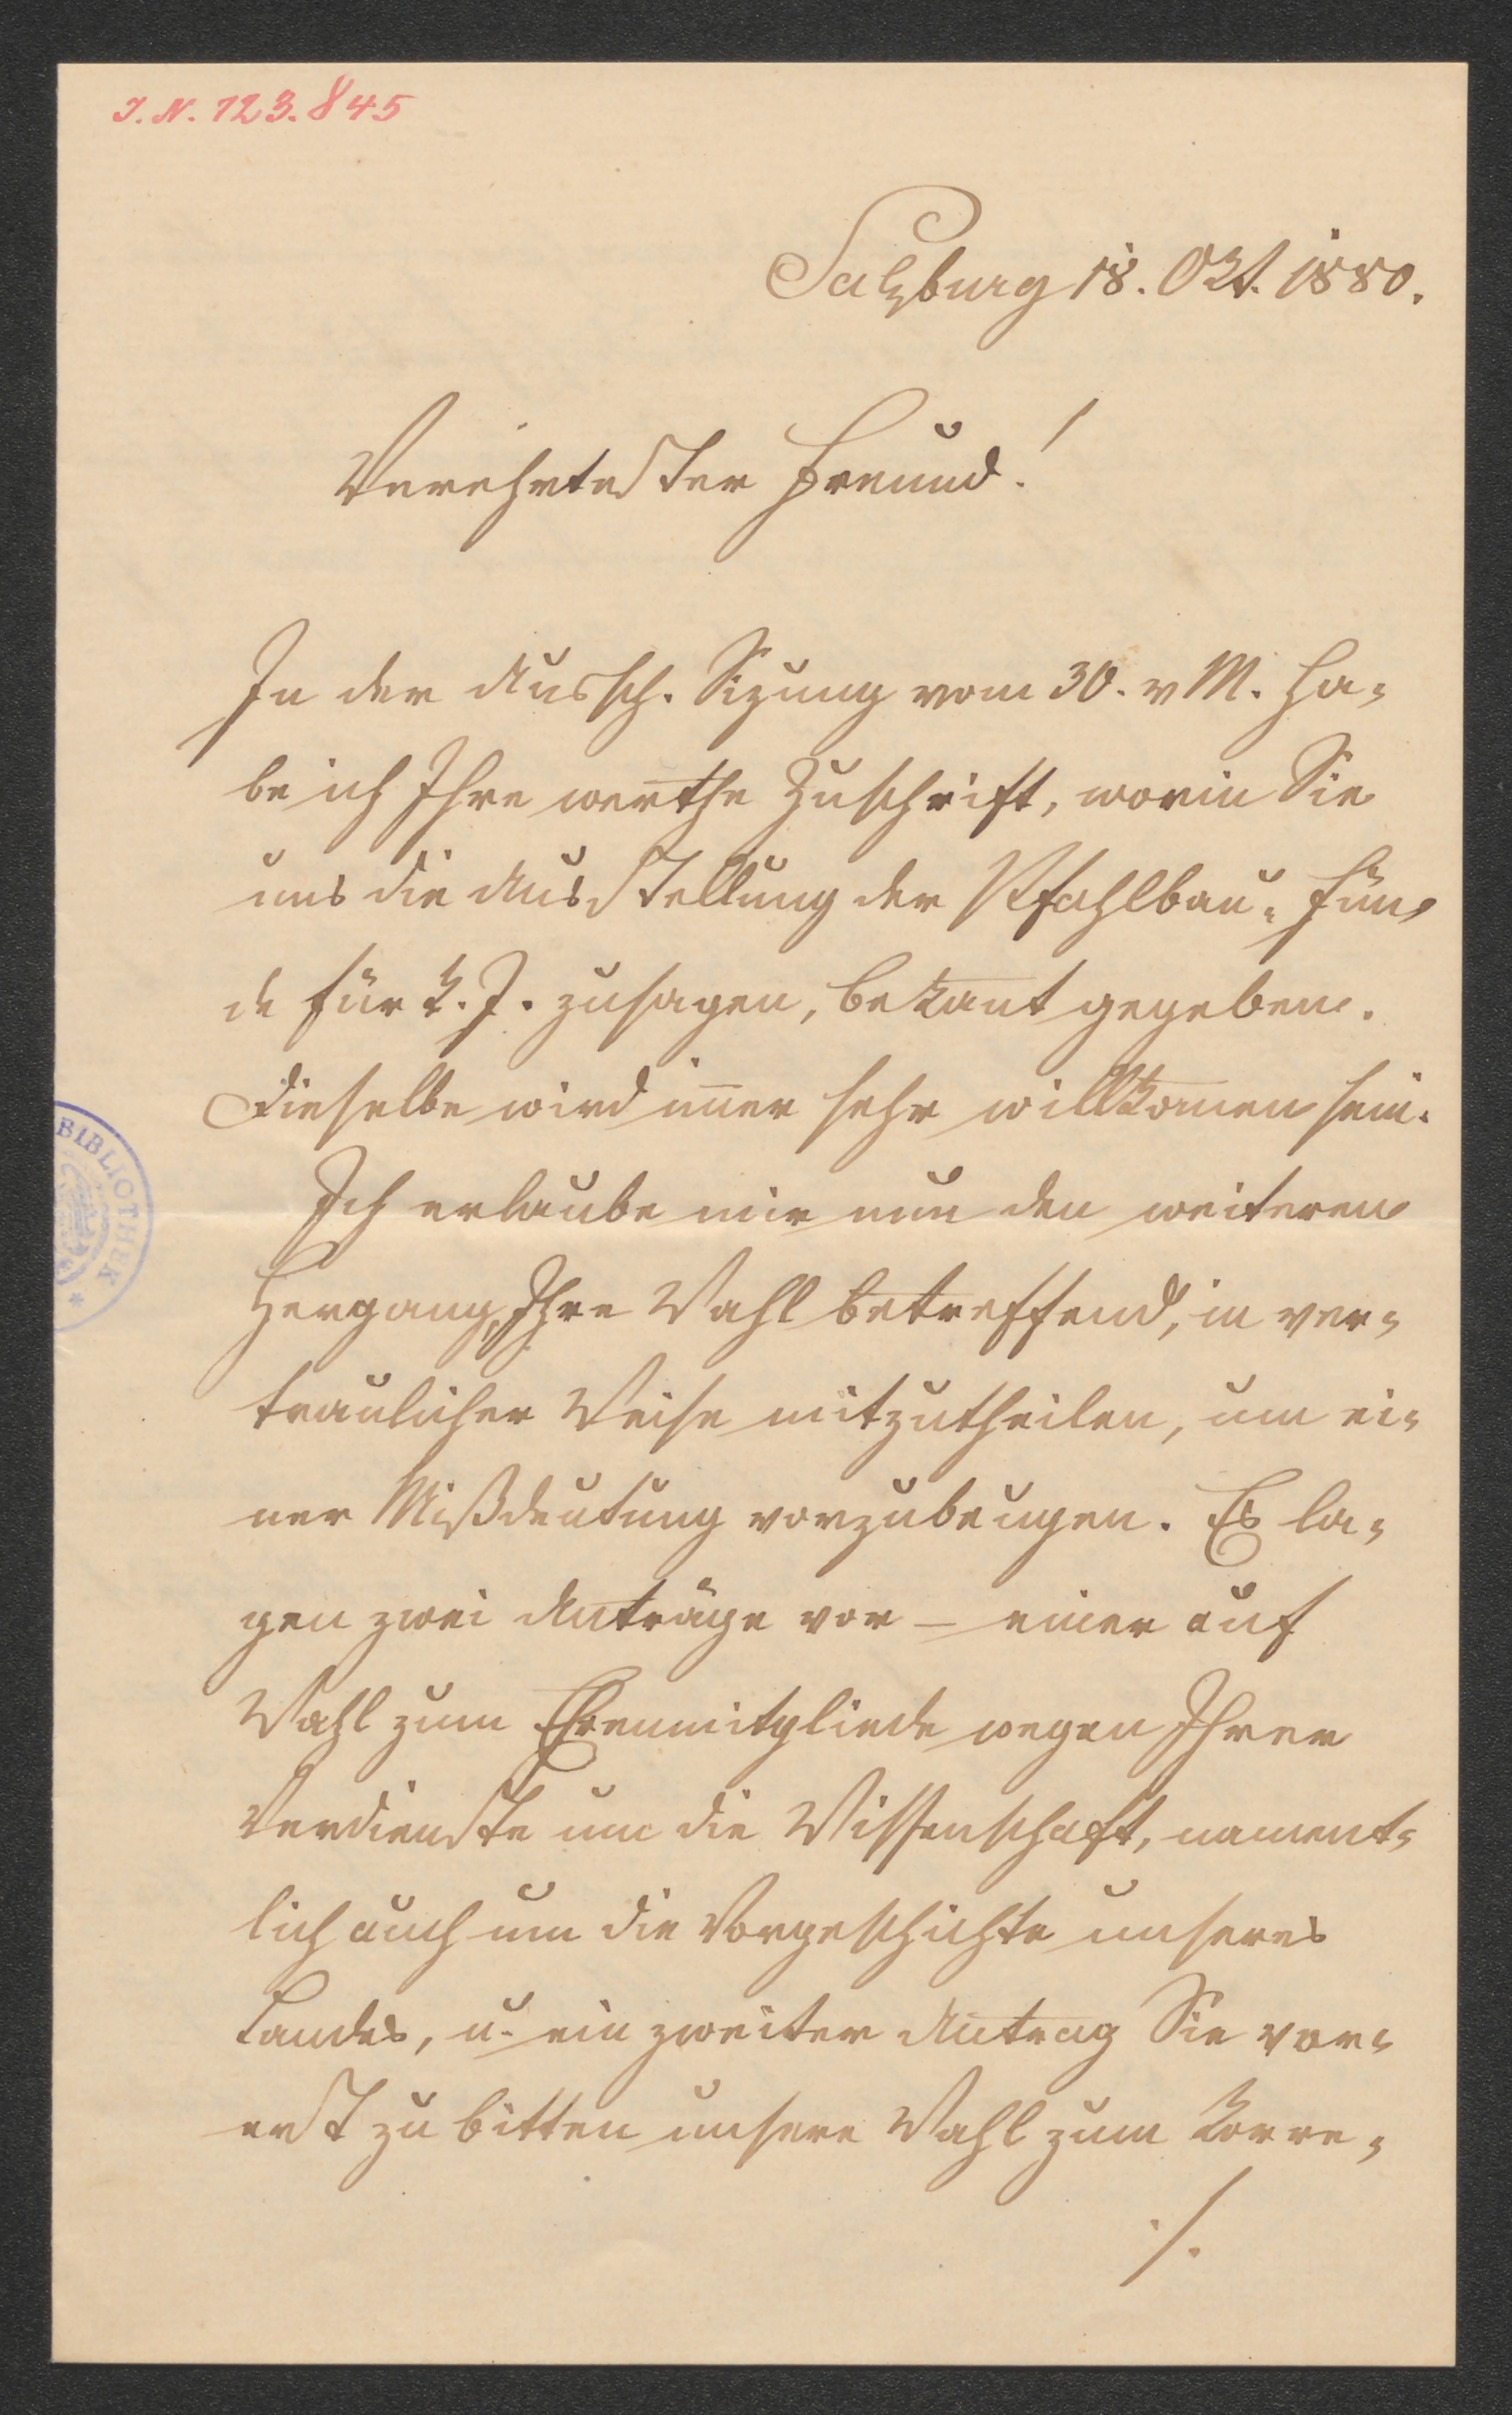 I. N. 123.845
Salzburg 18. Okt. 1880.
Verehrtester Freund!
In der Aussch. Sizung vom 30. v M. ha-
be ich Ihre werthe Zuschrift, worin Sie
uns die Ausstellung der Pfahlbau-Fun-
de für k. J. zusagen, bekan̅t gegeben.
Dieselbe wird im̅er sehr willkom̅en sein.
Ich erlaube mir nun den weiteren
Hergang, Ihre Wahl betreffend, in ver-
traulicher Weise mitzutheilen, um ei-
ner Mißdeutung vorzubeugen. Es la-
gen zwei Anträge vor – einer auf
Wahl zum Ehrenmitgliede wegen Ihrer
Verdienste um die Wissenschaft, nament-
lich auch um die Vorgeschichte unseres
Landes, u. ein zweiter Antrag Sie vor-
erst zu bitten unsere Wahl zum Korre-
./.
BIBLIOTHEK